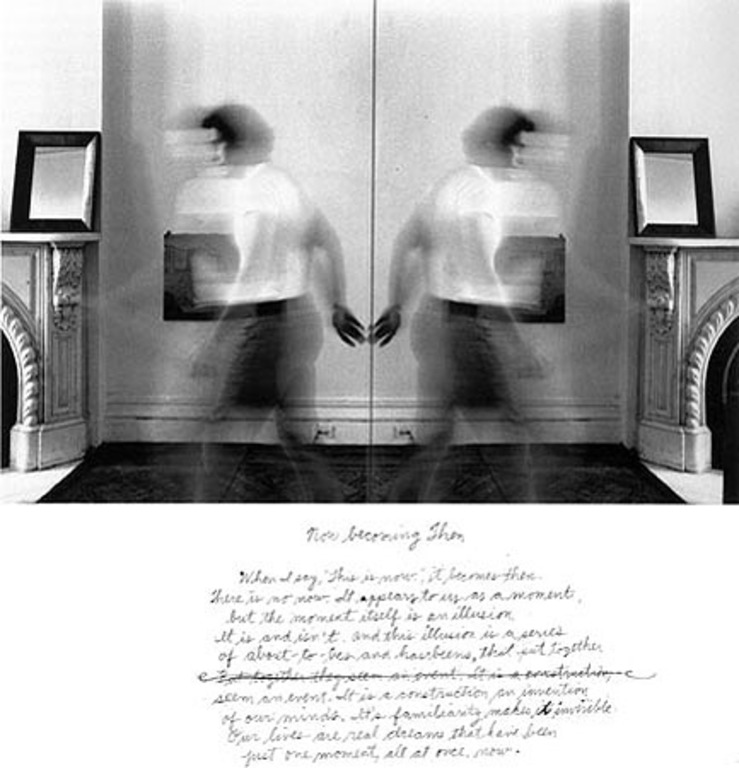 Now becoming Then
When I say, "This is now", it becomes then.
There is no now. It appears to us as a moment,
but the moment itself is an illusion.
It is and isn't. And this illusion is a series
of about-to-bes and hasbeens, that put together
Put together they seem an event. It is a construction,
seem an event. It is a construction, an invention
of our minds. It's familiarity makes it invisible.
Our lives are real dreams that have been
just one moment, all at once, now.